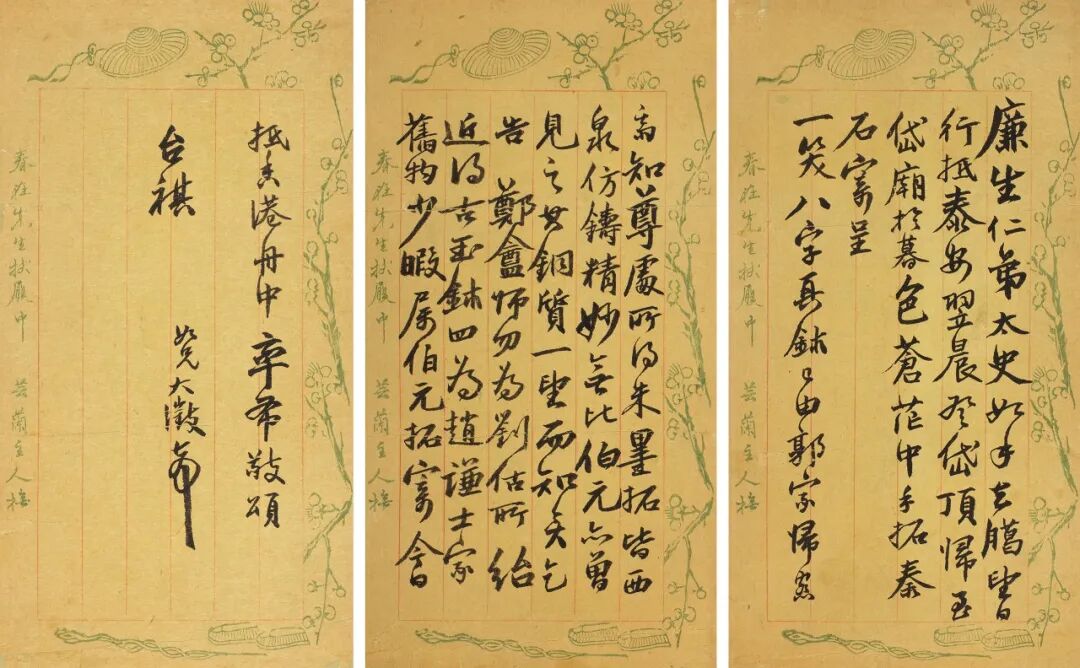 廉生仁弟太史如手去臘望日
行抵泰安翌晨登岱頂歸至
岱廟於暮色蒼茫中手拓秦
石寄呈
一笑八字真鉥已由郭家歸愙
春在先生杖履中 芸蘭主人橅
齋知尊處所得朱墨拓皆西
泉仿鑄精妙無比伯元亦曾
見之其銅質一望而知矣乞
告 鄭盦師勿為劉估所紿
近得古玉鉥四為趙謙士家
舊物少暇屬伯元拓寄今日
春在先生杖履中 芸蘭主人橅
抵香港舟中率布敬頌
台祺
如兄大澂頓首
春在先生杖履中 芸蘭主人橅